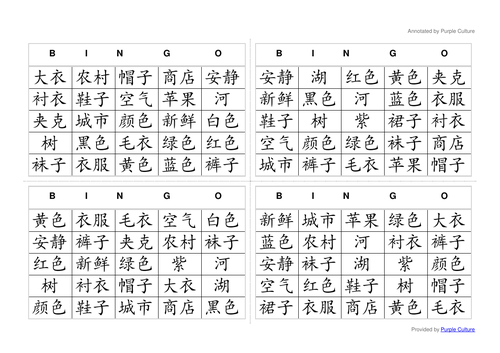 Annotated by Purple Culture
B I N G O
大衣 农村 帽子 商店 安静
衬衣 鞋子 空气 苹果 河
夹克 城市 颜色 新鲜 白色
树 黑色 毛衣 绿色 红色
袜子 衣服 黄色 蓝色 裤子
B I N G O
安静 湖 红色 黄色 夹克
新鲜 黑色 河 蓝色 衣服
鞋子 树 紫 裙子 衬衣
空气 颜色 绿色 袜子 商店
城市 裤子 毛衣 苹果 帽子
B I N G O
黄色 衣服 毛衣 空气 白色
安静 裤子 夹克 农村 袜子
红色 新鲜 绿色 紫 河
树 衬衣 帽子 大衣 湖
颜色 鞋子 城市 商店 黑色
B I N G O
新鲜 城市 苹果 绿色 大衣
蓝色 农村 河 衬衣 裤子
安静 袜子 湖 紫 颜色
空气 红色 鞋子 树 帽子
裙子 衣服 商店 黄色 毛衣
Provided by Purple Culture